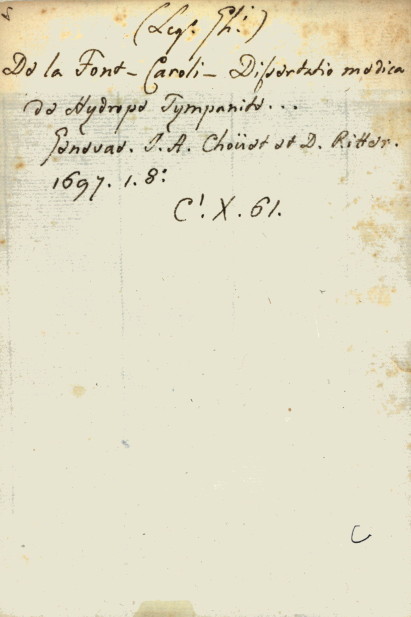 (Leg. Gh.)
De la Font - Caroli - Dissertatio medica
de Hydrope Tympanite...
Genevae. J. A. Choüet et D. Ritter.
1697. 1. 8:
C!. X. 61.
C